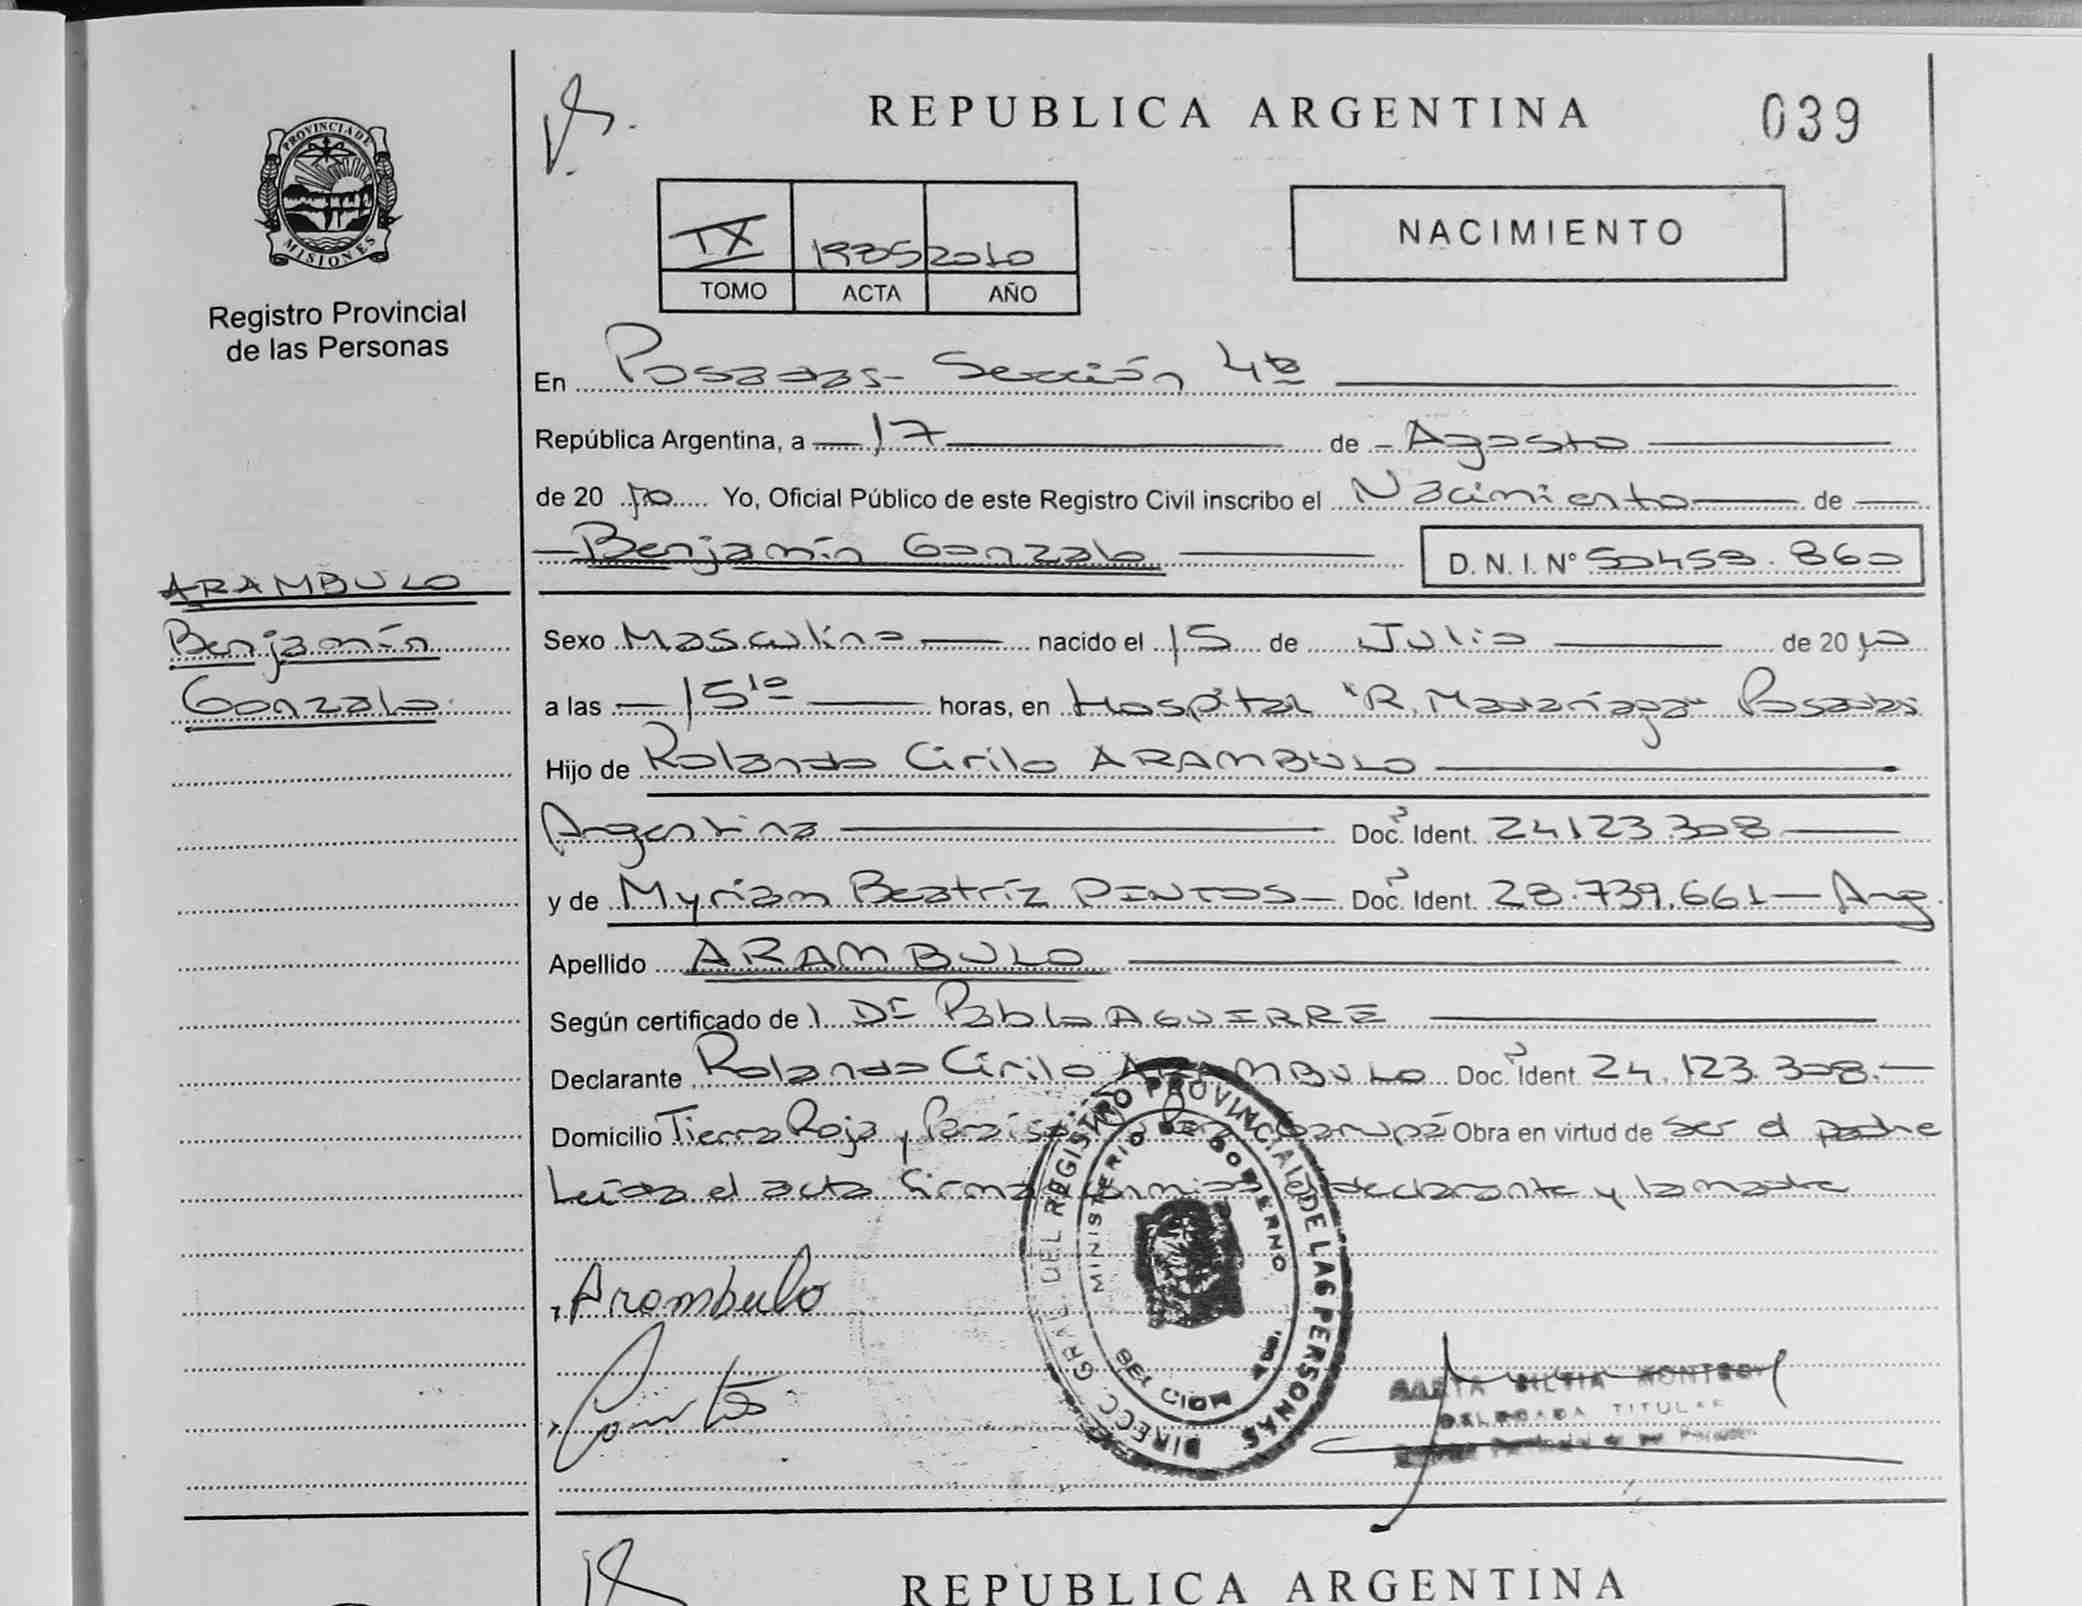 PROVINCIA DE
MISIONES
Registro Provincial
de las Personas
ARAMBULO
Benjamín
Gonzalo
REPUBLICA ARGENTINA
039
IX 1985 2010
TOMO ACTA AÑO
NACIMIENTO
En Posadas - Sección 4ta
República Argentina, a 17 de Agosto
de 2010 Yo, Oficial Público de este Registro Civil inscribo el Nacimiento de
Benjamín Gonzalo D. N. I. Nº 50459.860
Sexo Masculino nacido el 15 de Julio de 2010
a las 15 10 horas, en Hospital "R. Madariaga" Posadas
Hijo de Rolando Cirilo ARAMBULO
Argentina Doc. Ident. 24123.308
y de Myriam Beatríz PINTOS - Doc. Ident. 28.739.661 - Arg.
Apellido ARAMBULO
Según certificado de 1 Dr Pablo AGUIRRE
Declarante Rolando Cirilo ARAMBULO Doc. Ident. 24.123.308.-
Domicilio Tierra Roja y Garupá Obra en virtud de ser el padre
Leída el acta firma declarante y la madre
Arambulo
DIRECC GRAL DEL REGISTRO PROVINCIAL DE LAS PERSONAS
MINISTERIO DE GOBIERNO
SILVIA
TITULAR
REPUBLICA ARGENTINA